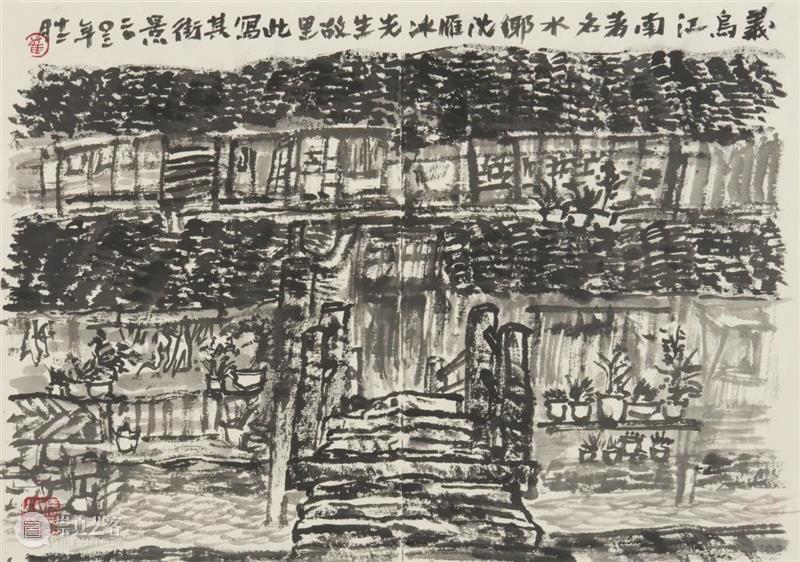 義烏江南著名水鄉沈雁冰先生故里此寫其街景年
崔